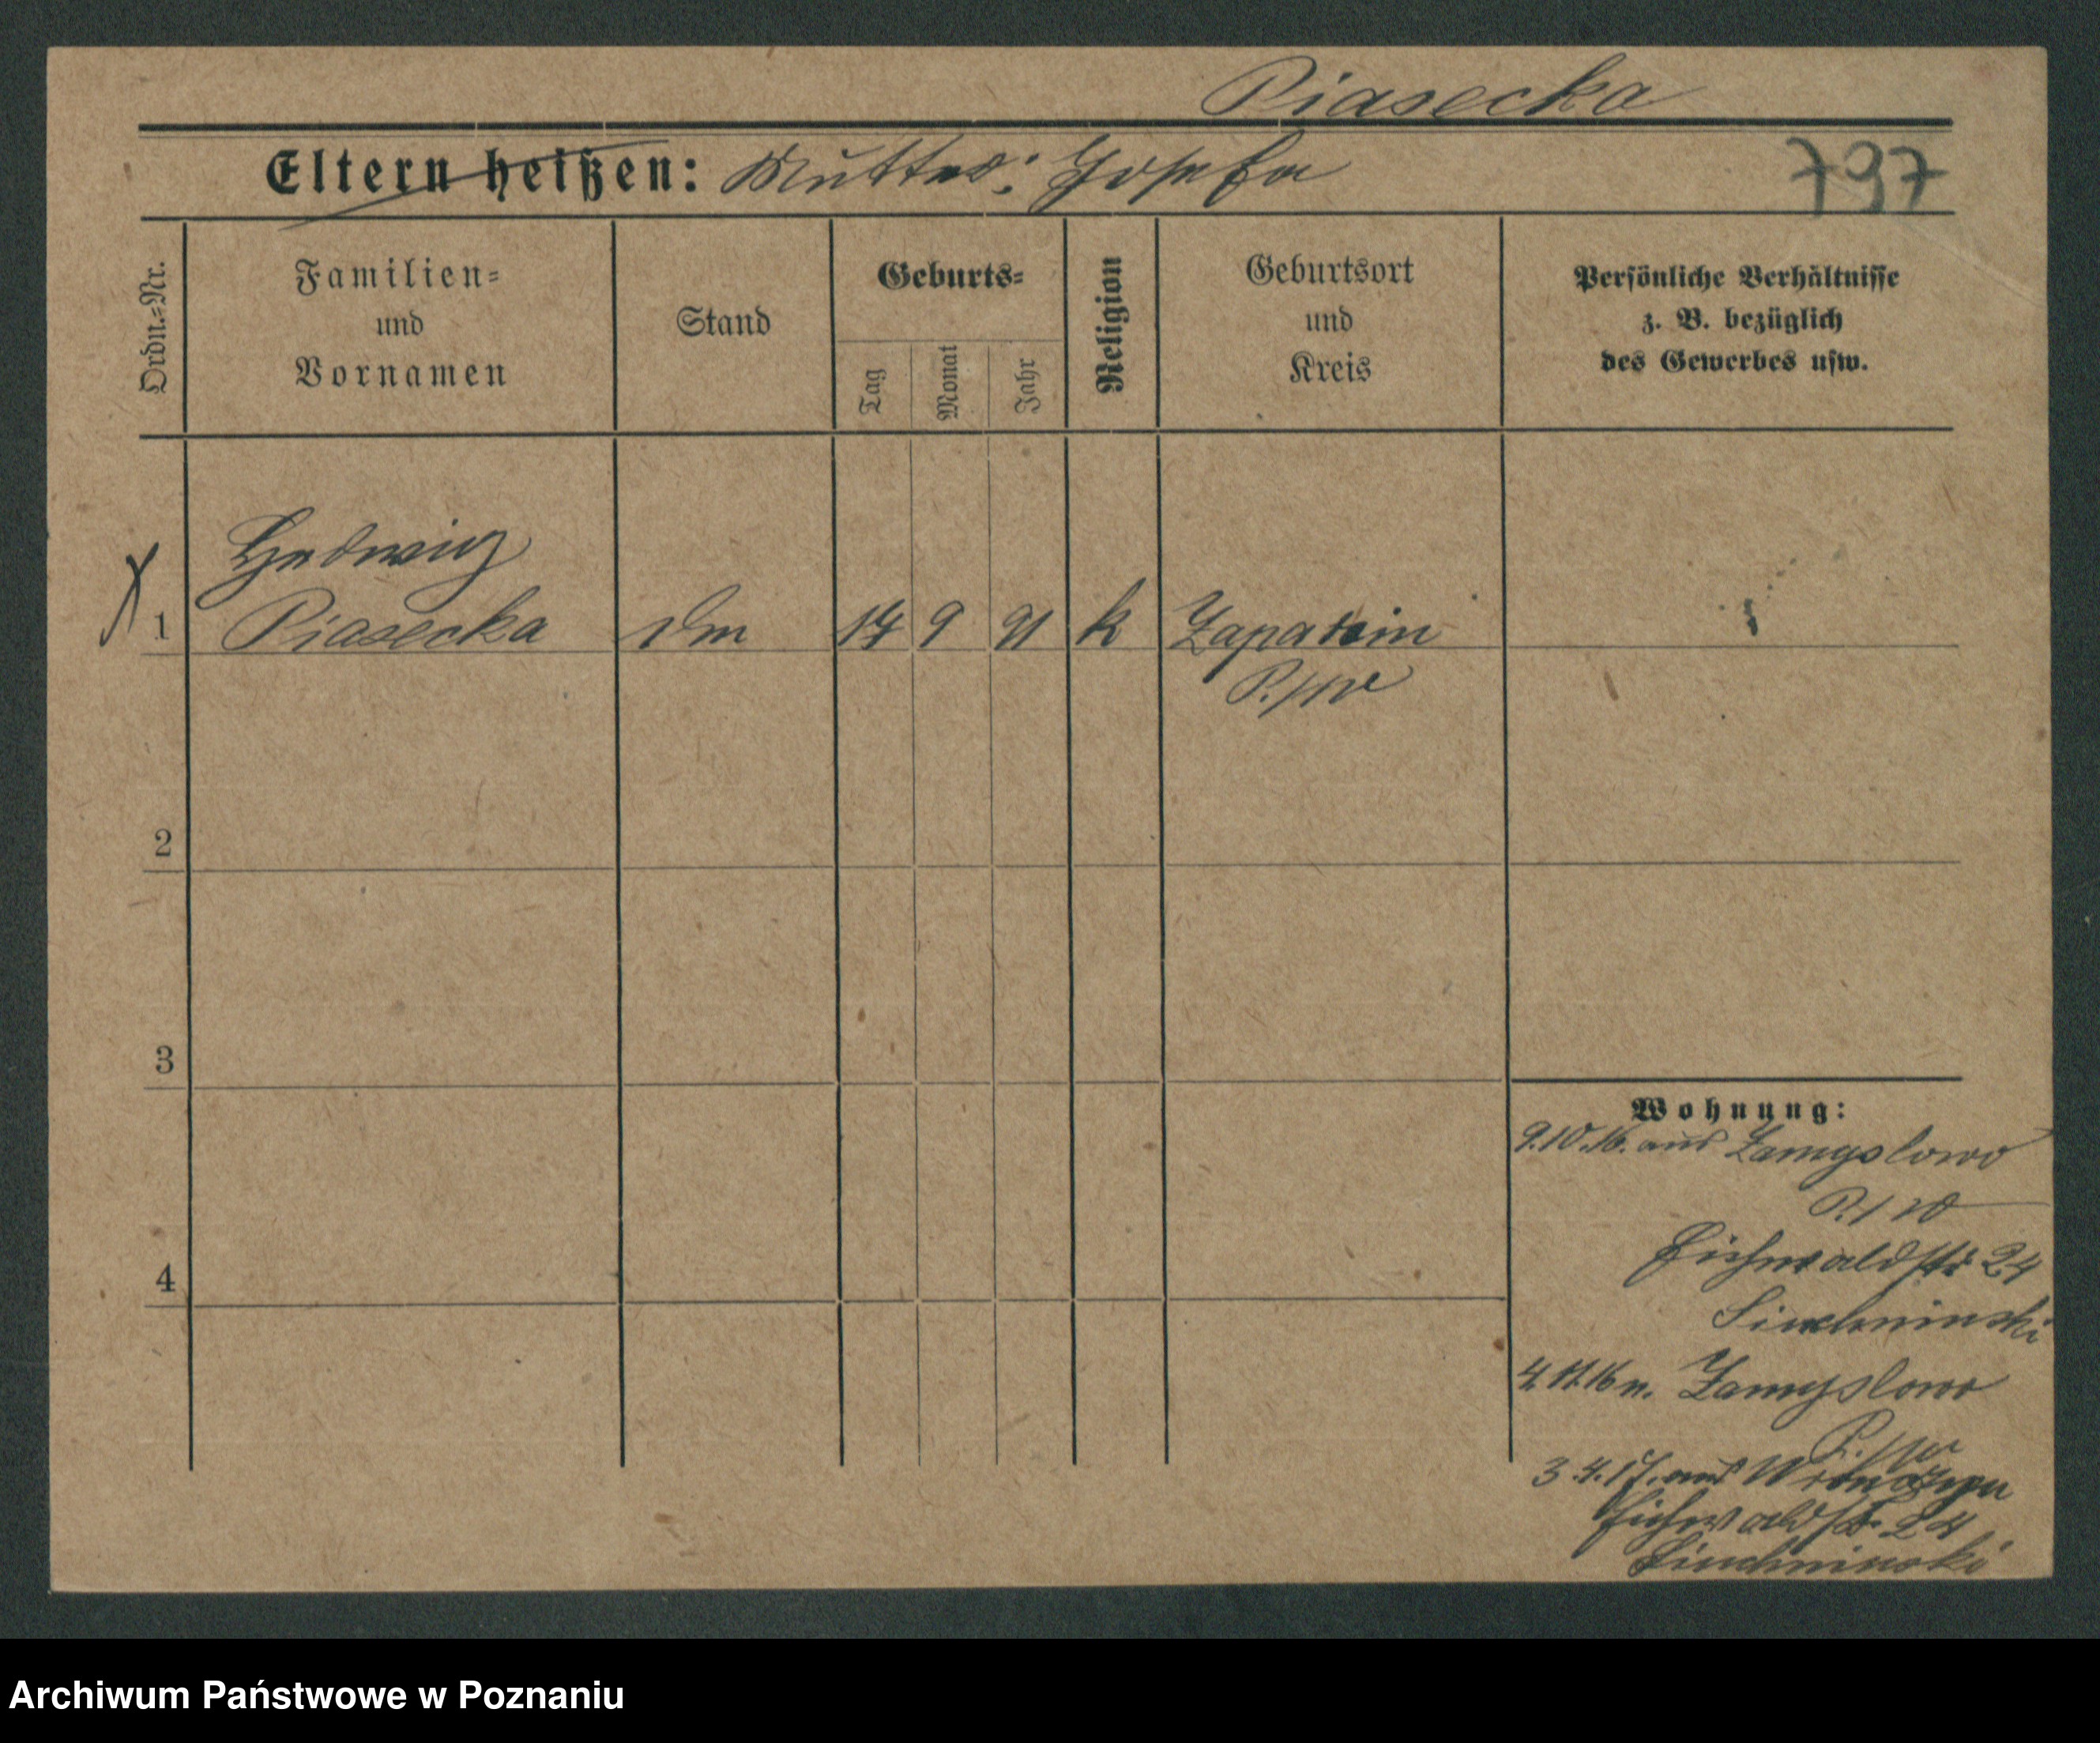 Piasecka
Eltern heißen: Mutter: Josefa
797
Ordn.=Nr.
Familien=
und
Vornamen
Stand
Geburts=
Tag
Monat
Jahr
Religion
Geburtsort
und
Kreis
Persönliche Verhältnisse
z. B. bezüglich
des Gewerbes usw.
Hedwig
1 Piasecka 14 9 91 k
2
3
4
Wohnung:
9.10.16. aus Zamyslowo
Eichwaldstr 24
4.11.16 n. Zamyslowo
3.4.17. aus
Eichwaldstr. 24
Archiwum Państwowe w Poznaniu